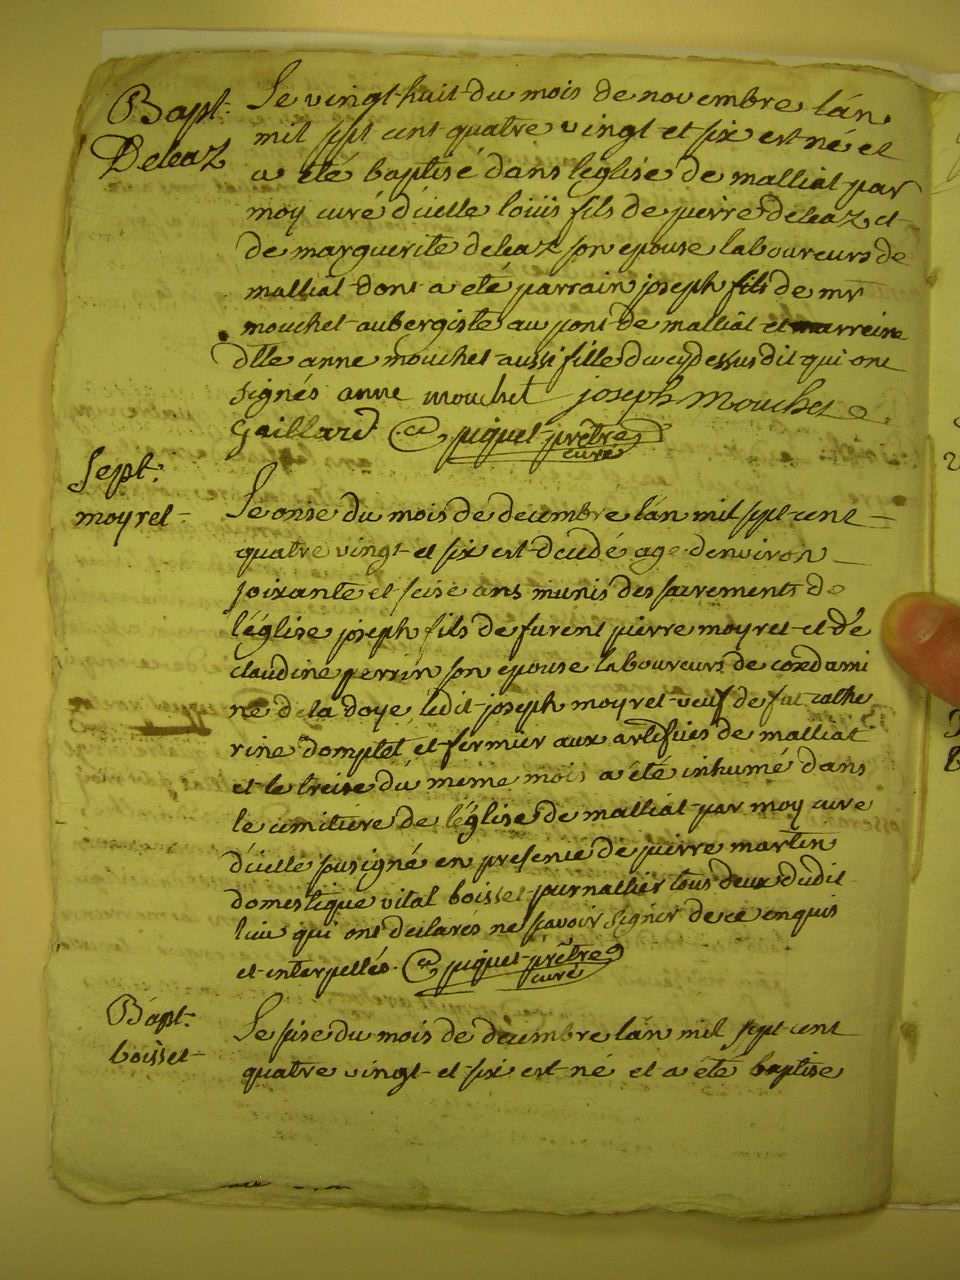 Bapt.
Deleaz
Le vingt-huit du mois de novembre l'an
mil sept cent quatre vingt et six est né et
a été baptisé dans l'église de malliat par
moy curé d'icelle loüis fils de pierre deleaz et
de marguerite deleaz son epouse laboureurs de
malliat dont a été parrain joseph fils de mr
mouchet aubergiste au pont de malliat et marreine
dlle anne mouchet aussi fille du cy dessus dit qui ont
signés anne mouchet joseph mouchet
Gaillard piquet prêtre
curé
Sept.
moyret
Le onse du mois de decembre l'an mil sept cent
quatre vingt et six est decedé age d'environ
soixante et seise ans munis des sacrements de
l'église joseph fils de furent pierre moyret et de
claudine perrin son epouse laboureurs de condami
ne de la doye ledit joseph moyret veuf de fut cathe
rine domptet et fermier aux artifices de malliat
et le treise du meme mois a été inhumé dans
le cimitiere de l'église de malliat par moy cure
d'icelle sousigné en presence de pierre martin
domestique vital boisset journallier tous deux dudit
lieu qui ont declarés ne savoir signer de ce enquis
et interpellés. piquet prêtre
curé
Bapt.
boisset
Le sise du mois de decembre l'an mil sept cent
quatre vingt et six est né et a été baptise